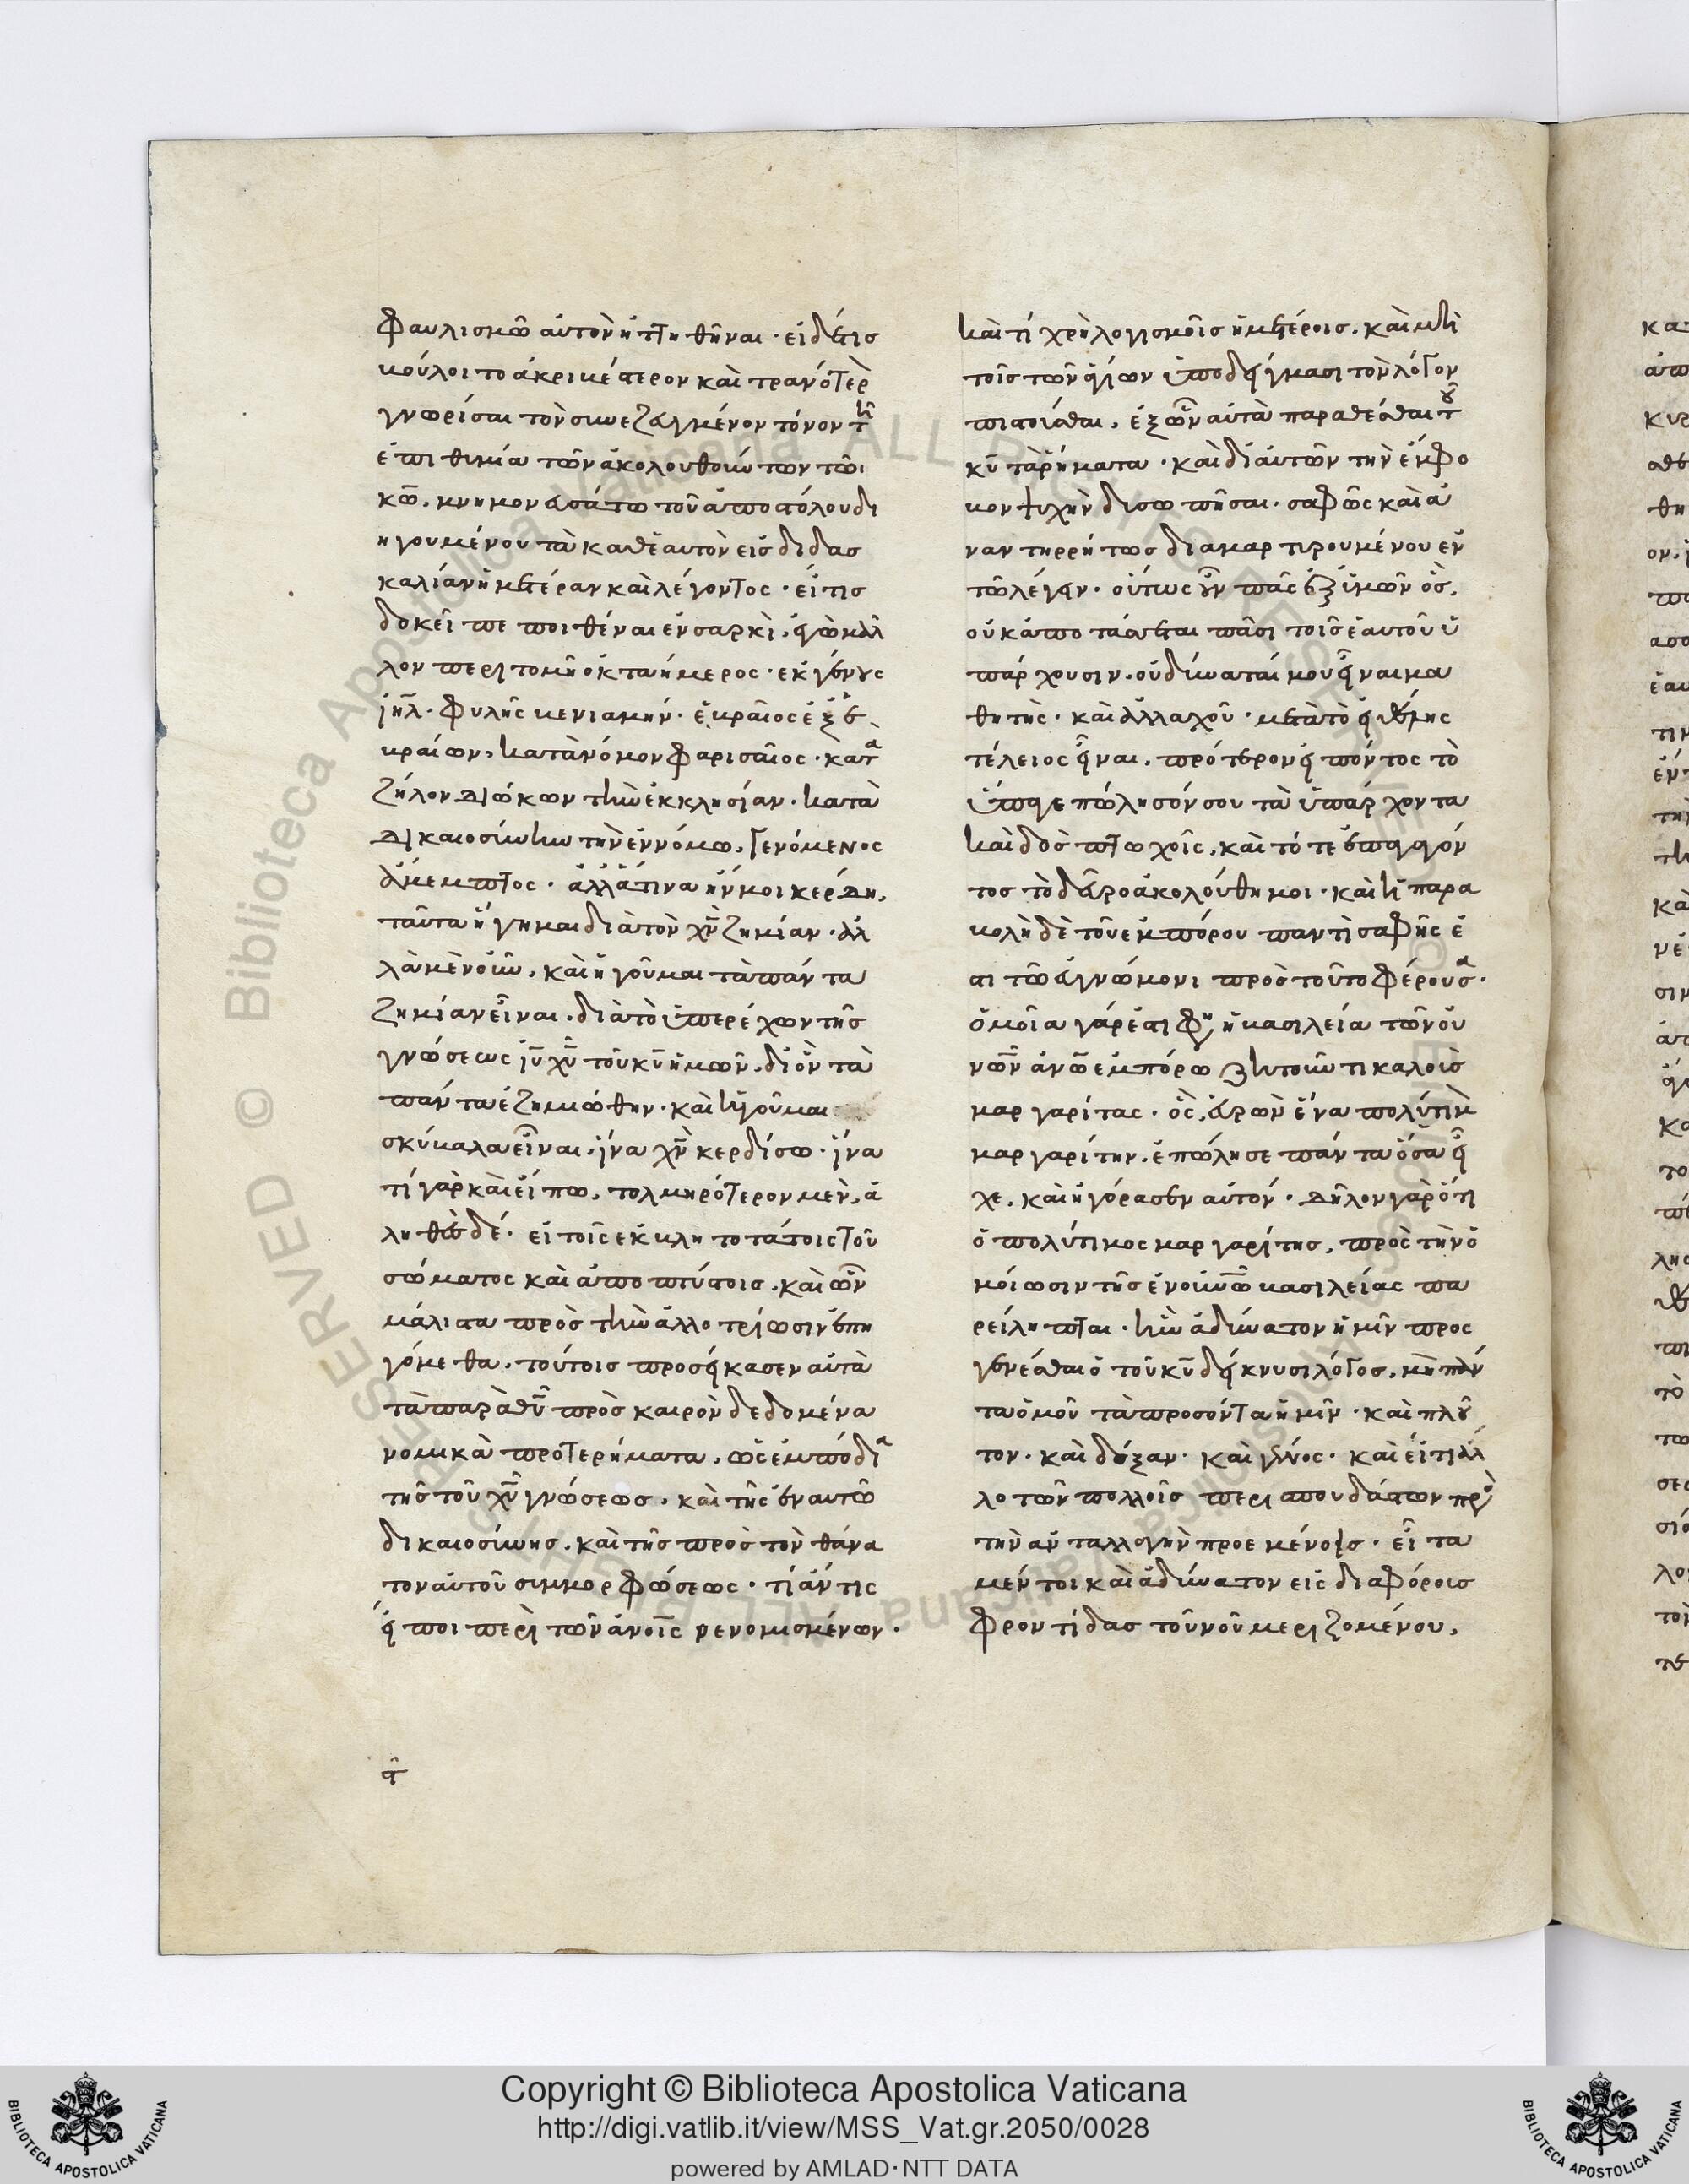 φαυλισμῶ αὐτὸν ἡττηθῆναι· εἰ δέ τις
βούλοιτο ἀκριβέστερον καὶ τρανότερ
γνωρίσαι τὸν συνεζευγμένον πόνον τῆ
ἐπιθυμία τῶν ἀκολουθούντων τῶ
κω̅. μνημονευσάτω τοῦ ἀποστόλου δι
ηγουμένου τὰ καθ' ἑαυτὸν εἰς διδασ
καλίαν ἡμετέραν καὶ λέγοντος· εἴ τις
δοκεῖ πεποιθέναι ἐν σαρκὶ, ἐγὼ μᾶλ
λον περιτομῆ ὀκταήμερος· ἐκ γένους
ιη̅λ· φυλῆς βενιαμήν· ἑβραῖος ἐξ ἑ
βραίων, κατὰ νόμον φαρισαῖος· κατὰ
ζῆλον διώκων τὴν ἐκκλησίαν· κατὰ
δικαιοσύνην τὴν ἐν νόμω, γενόμενος
ἄμεμπτος· ἀλλ' ἅτινα ἦν μοι κέρδη,
ταῦτα ἥγημαι διὰ τὸν χν̅ ζημίαν· ἀλ
λὰ μὲν οὖν, καὶ ἡγοῦμαι τὰ πάντα
ζημίαν εἶναι, διὰ τὸ ὑπερέχων τῆς
γνώσεως ιυ̅ χυ̅ τοῦ κυ̅ ἡμῶν, δι' ὃν τὰ
πάντα ἐζημιώθην· καὶ ἡγοῦμαι
σκύβαλα εἶναι, ἵνα χν̅ κερδίσω· ἵνα
τί γὰρ καὶ εἴπω, τολμηρότερον μὲν, ἀ
ληθὲς δέ· εἰ τοῖς ἐκβλητοτάτοις τοῦ
σώματος καὶ ἀποπτύστοις, καὶ ὧν
μάλιστα πρὸς τὴν ἀλλοτρίωσιν ἐπη
γόμεθα, τούτοις προσείκασεν αὐτὰ
τὰ παρὰ θυ̅ πρὸς καιρὸν δεδομένα
νομικὰ προτερήματα, ὡς ἐμπόδια
τῆς τοῦ χυ̅ γνώσεως, καὶ τῆς ἐν αυτῶ
δικαιοσύνης, καὶ τῆς πρὸς τὸν θάνα
τον αὐτοῦ συμμορφώσεως· τί ἄν τις
εἴποι περὶ τῶν ἀνοις νενομισμένων·
ϥ
καὶ τί χρὴ λογισμοῖς ἡμετέροις, καὶ μὴ
τοῖς τῶν ἁγίων ὑποδείγμασι τὸν λόγον
πιστοῦσθαι, ἐξὸν αὐτὰ παραθέσθαι τοῦ
κυ̅ τὰ ῥήματα· καὶ δι' αὐτῶν τὴν ἔμφο
βον ψυχὴν δισωπῆσαι· σαφῶς καὶ ἀ
ναντηρρήτως διαμαρτυρουμένου ἐν
τῶ λέγειν· οὕτως οὖν πᾶς ἐξ ὑμῶν ὃς,
οὐκ ἀποτάσσεται πᾶσι τοῖς ἑαυτοῦ ὑ
πάρχουσιν, οὐ δύναταί μου εἶναι μα
θητὴς· καὶ ἀλλαχοῦ· μετὰ τὸ εἰ θέλης
τέλειος εἶναι, πρότερον εἰπόντος τὸ
ὕπαγε πώλησόν σου τὰ ὑπάρχοντα
καὶ δὸς πτωχοῖς, καὶ τότε ἐπαγαγόν
τος τὸ δεῦρο ἀκολούθη μοι· καὶ ἡ παρα
βολὴ δὲ τοῦ ἐμπόρου παντὶ σαφὴς ἐ
στι τῶ εὐγνώμονι πρὸς τοῦτο φέρουσα·
ὁμοῖα γάρ ἐστι φη ἡ βασιλεία τῶν οὐ
νῶν ἀνω̅ ἐμπόρω ζητοῦντι καλοὺς
μαργαρίτας· ὃς, εὑρὼν ἕνα πολύτιμ
μαργαρίτην, ἐπώλησε πάντα ὅσα εἶ
χε, καὶ ἠγόρασεν αὐτόν· δῆλον γὰρ ὅτι
ὁ πολύτιμος μαργαρίτης, πρὸς τὴν ὁ
μοίωσιν τῆς ἐνουνίω βασιλείας πα
ρείληπται· ἣν ἀδύνατον ἡμῖν προς
γενέσθαι ὁ τοῦ κυ̅ δείκνυσι λόγος, μὴ πάν
τα ὁμοῦ τὰ προσόντα ἡμῖν· καὶ πλοῦ
τον· καὶ δόξαν· καὶ γένος· καὶ εἴ τι ἀλ
λο τῶν πολλοῖς περισπουδάστων πρὸ
τὴν ἀνταλλαγὴν προεμένοις· εἶτα
μέντοι καὶ ἀδύνατον εἰς διαφόροις
φροντίδας τοῦ νοῦ μεριζομένου,
Copyright © Biblioteca Apostolica Vaticana
http://digi.vatlib.it/view/MSS_Vat.gr.2050/0028
powered by AMLAD·NTT DATA